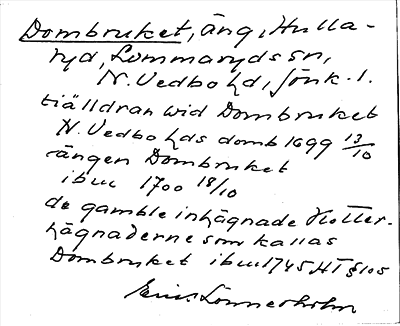 Dombruket, äng, Hulla-
ryd, Lommaryds sn,
N. Vedbo hd, Jönk. l.
tiälldran wid Dombruket
N. Vedbo hds domb 1699 13/10
ängen Dombruket
ibm 1700 18/10
de gamble inhägnade Slotter-
hägnaderne som kallas
Dombruket ibm 1745 HT § 105
Lönnerholm